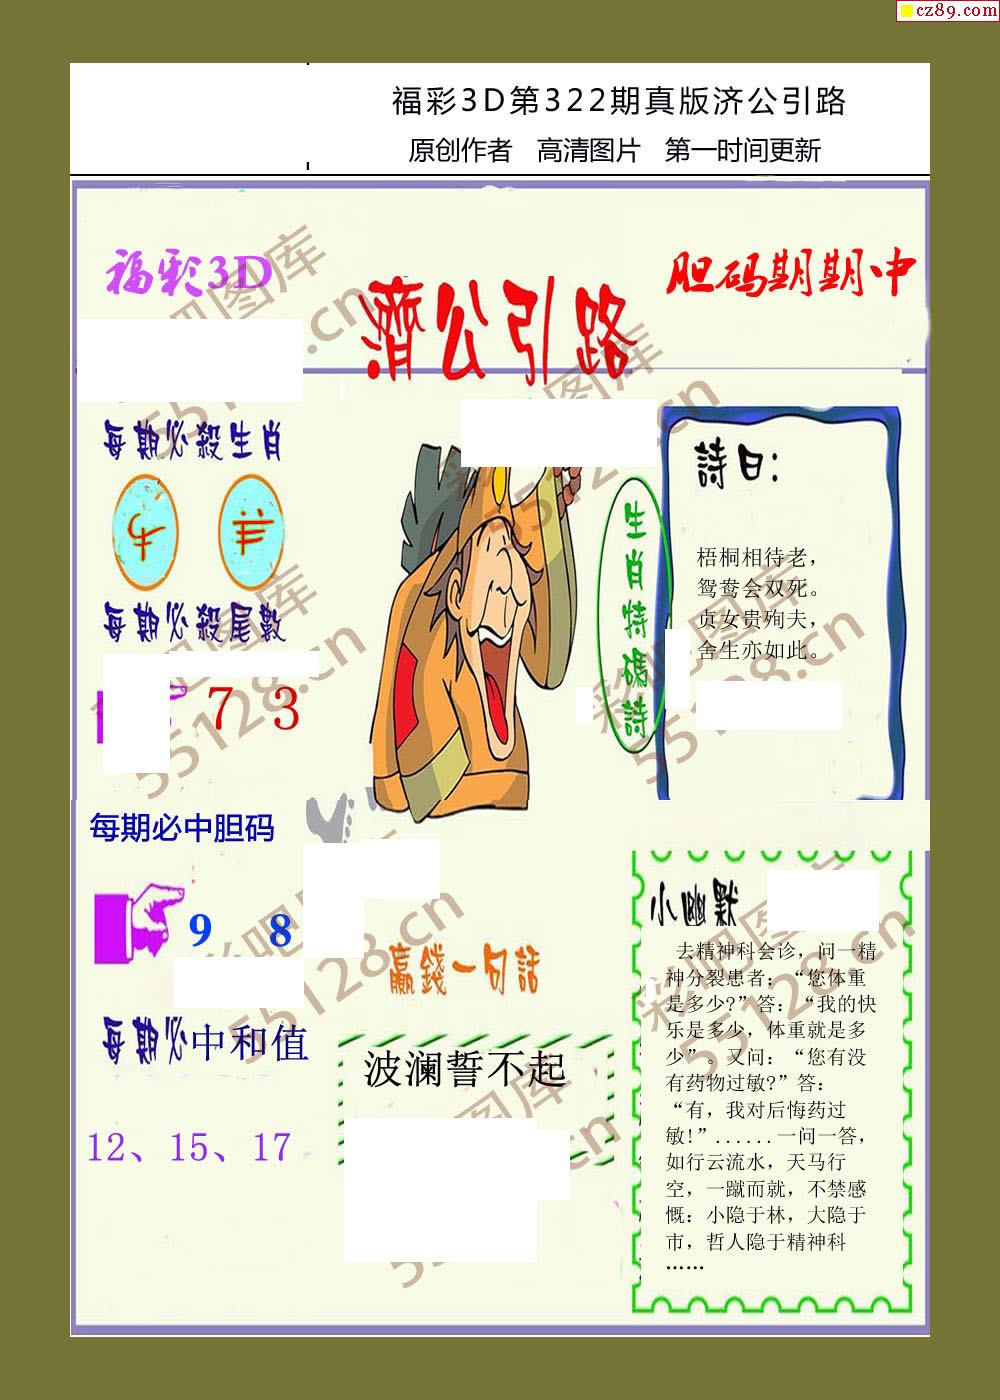 cz89.com
福彩3D第322期真版济公引路
原创作者 高清图片 第一时间更新
福彩3D
濟公引路
胆码期期中
每期必殺生肖
牛 羊
每期必殺尾數
7 3
每期必中胆码
9 8
每期必中和值
12、15、17
生肖特碼詩
詩曰：
梧桐相待老，
鸳鸯会双死。
贞女贵殉夫，
舍生亦如此。
赢錢一句話
波澜誓不起
小幽默
去精神科会诊，问一精
神分裂患者：“您体重
是多少?”答：“我的快
乐是多少，体重就是多
少”。又问：“您有没
有药物过敏?”答：
“有，我对后悔药过
敏!”......一问一答，
如行云流水，天马行
空，一蹴而就，不禁感
慨：小隐于林，大隐于
市，哲人隐于精神科
……
彩吧图库
55128.cn